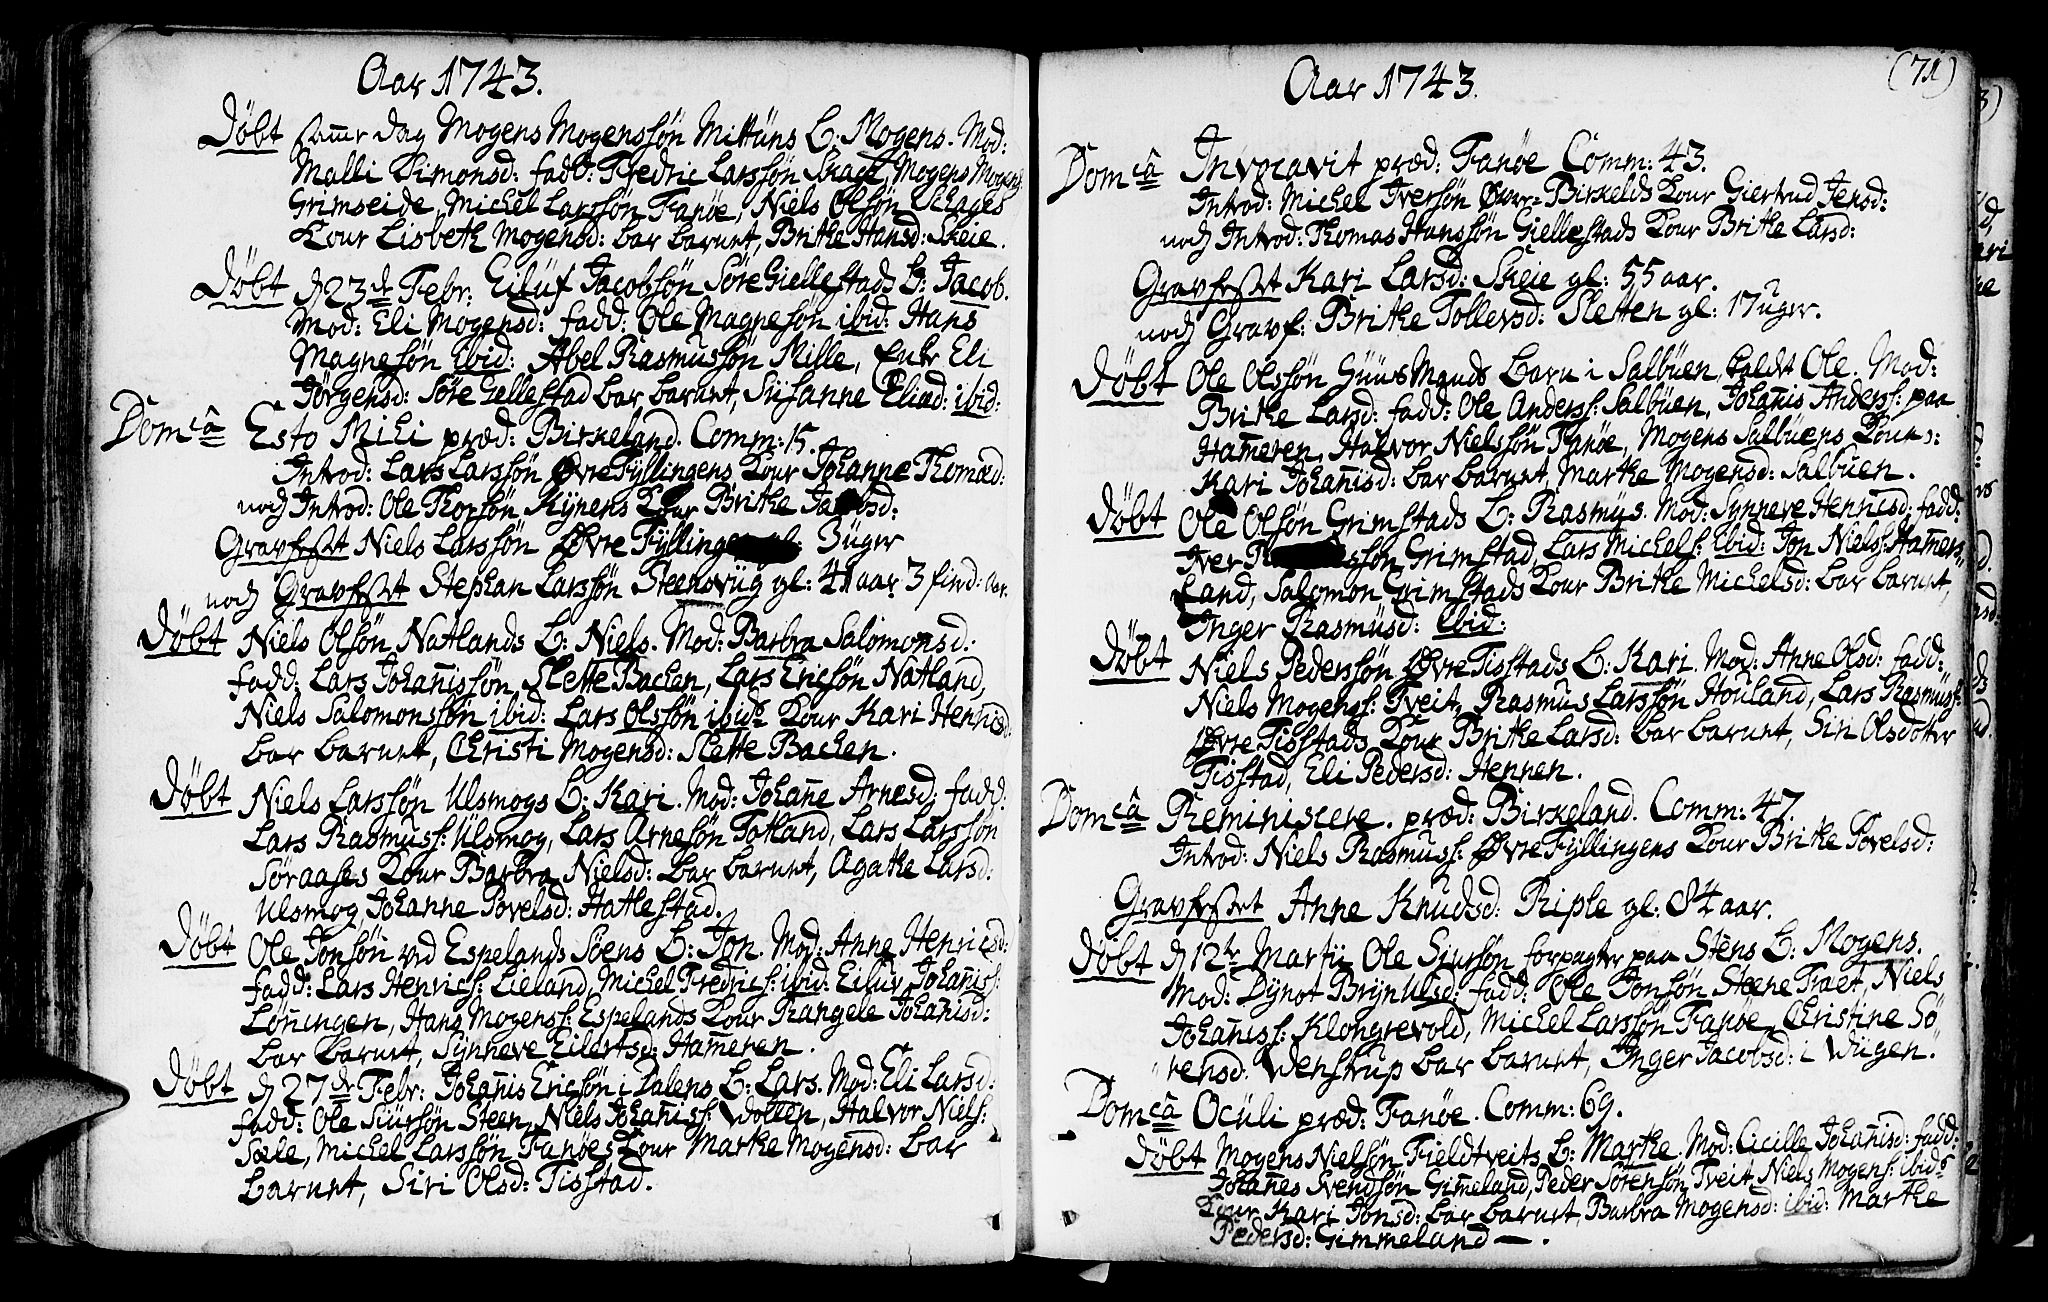 Aar 1743.
Døbt samme dag Mogens Mogenssøn Mittüns B: Mogens. Mod:
Malli Simonsd: fadd: Fredric Larssøn Skage, Mogens Mogens:
Grimseide, Michel Larssøn Fanøe, Niels Olssøn Schages
Kour Lisbeth Mogensd: bar barnet, Brithe Hansd: Skeie.
Døbt d 23de Febr: Eilüf Jacobsøn Søre Giellestads B: Jacob.
Mod: Eli Mogensd: fadd: Ole Magnesøn ibid: Hans
Magnesøn Ibid: Abel Rasmussøn Mille, Enke Eli
Jørgensd: Søre Gellestad bar barnet, Susanne Eliæd: ibid:
Domcâ Esto Mihi præd: Birkeland. Comm: 15.
Introd: Lars Larssøn Øvre Fyllingens Kour Johanne Thomæd:
noch Introd: Ole Thorsøn Kynens Kour Brithe Jacobsd:
Gravfestet Niels Larssøn Øvre Fyllingen gl: 3 üger
noch Gravfestet Stephan Larssøn Steensviig gl: 41 aar 3 fierd: aar.
Døbt Niels Olsøn Natlands B: Niels. Mod: Barbra Salomonsd:
fadd: Lars Johanissøn, Slette Bachen, Lars Ericsøn Natland,
Niels Salomonssøn ibid: Lars Olssøn ibid: Kour Kari Henricsd:
bar barnet, Christi Mogensd: Slette Bachen.
Døbt Niels Larssøn Ulsmogs B: Kari. Mod: Johanne Arnesd: fadd:
Lars Rasmuss: Ulsmog, Lars Arnesøn Totland, Lars Larssøn
Søraases Kour Barbra Nielsd: bar barnet, Agathe Larsd:
Ulsmog, Johanne Povelsd: Hatlestad.
Døbt Ole Jonsøn ved Espelands Soens B: Jon. Mod: Anne Henricsd:
fadd: Lars Henrics: Lieland, Michel Fredrics: ibid: Eiluv Johaniss:
Løningen, Hans Mogenss: Espelands Kour Rangele Johanisd:
bar barnet, Synneve Eilertsd: Hammeren.
Døbt d 27de Febr: Johanis Ericsøn i Dalens B: Lars. Mod: Eli Larsd:
fadd: Ole Siursøn Steen, Niels Johaniss: Dolven, Halvor Niels:
Sæle, Michel Larssøn Fanøes Kour Marthe Mogensd: bar
barnet, Siri Olsd: Tisstad.
(71)
Aar 1743.
Domcâ Invocavit præd: Fanøe Comm: 43.
Introd: Michel Iversøn Øvre-Birkelds Kour Giertrud Jensd:
noch Introd: Thomas Hanssøn Giellestads Kour Brithe Larsd:
Gravfestet Kari Larsd: Skeie gl: 55 aar.
noch Gravf: Brithe Tollevsd: Sletten gl: 17 uger.
Døbt Ole Olssøn Güüs Mands Barn i Salbuen, kaldt Ole. Mod:
Brithe Larsd: fadd: Ole Anderss: Salbüen, Johanis Anderss: paa
Hammeren, Halvor Nielssøn Fanøe, Mogens Salbüens Kour:
Kari Johanisd: bar barnet, Marthe Mogensd: Salbüen.
Døbt Ole Olssøn Grimstads B: Rasmus. Mod: Synneve Henricsd: fadd:
Iver Rasmussøn Grimstad, Lars Michels: Ibid: Jon Niels: Hamers
Land, Salomon Grimstads Kour Brithe Michelsd: bar barnet,
Inger Rasmusd: Ibid:
Døbt Niels Pederssøn Øvre Tisstads B: Kari. Mod: Anne Olsd: fadd:
Niels Mogens: Tveit, Rasmus Larssøn Houland, Lars Rasmüss:
Øvre Tisstads Kour Brithe Larsd: bar barnet, Siri Olsdotter
Tisstad, Eli Pedersd: Hennen.
Domcâ Reminiscere. præd: Birkeland. Comm: 47.
Introd: Niels Rasmuss: Øvre Fyllingens Kour Brithe Povelsd:
Gravfestet Anne Knudsd: Riple gl: 84 aar.
Døbt d 12te Martii Ole Siursøn forpagter paa Stens B: Mogens.
Mod: Dynot Brynulsd: fadd: Ole Jonsøn Steene Træt, Niels
Johaniss: Klongrevold, Michel Larssøn Fanøe, Christine Sö
rensd: Wenstrup bar barnet, Inger Jacobsd: i Wiigen.
Domcâ Oculi præd: Fanøe. Comm: 69.
Døbt Mogens Nielsøn Fieldtveits B: Marthe. Mod: Cicille Johanisd: fadd:
Johanes Svendsøn Gimeland, Peder Sørensøn Tveit, Niels Mogens: ibid:
Kour Kari Jonsd: bar barnet, Barbra Mogensd: ibid: Marthe
Pedersd: Gimmeland.